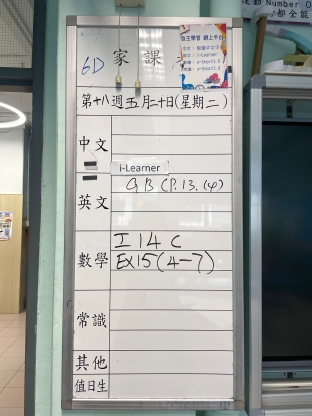 6D
家課
自主學習 網上平台
i-Learner
第十八週五月二十日(星期二)
中文
i-Learner
英文
GB (P.13. (4)
數學
I 14 C
Ex15 (4-7)
常識
其他
值日生